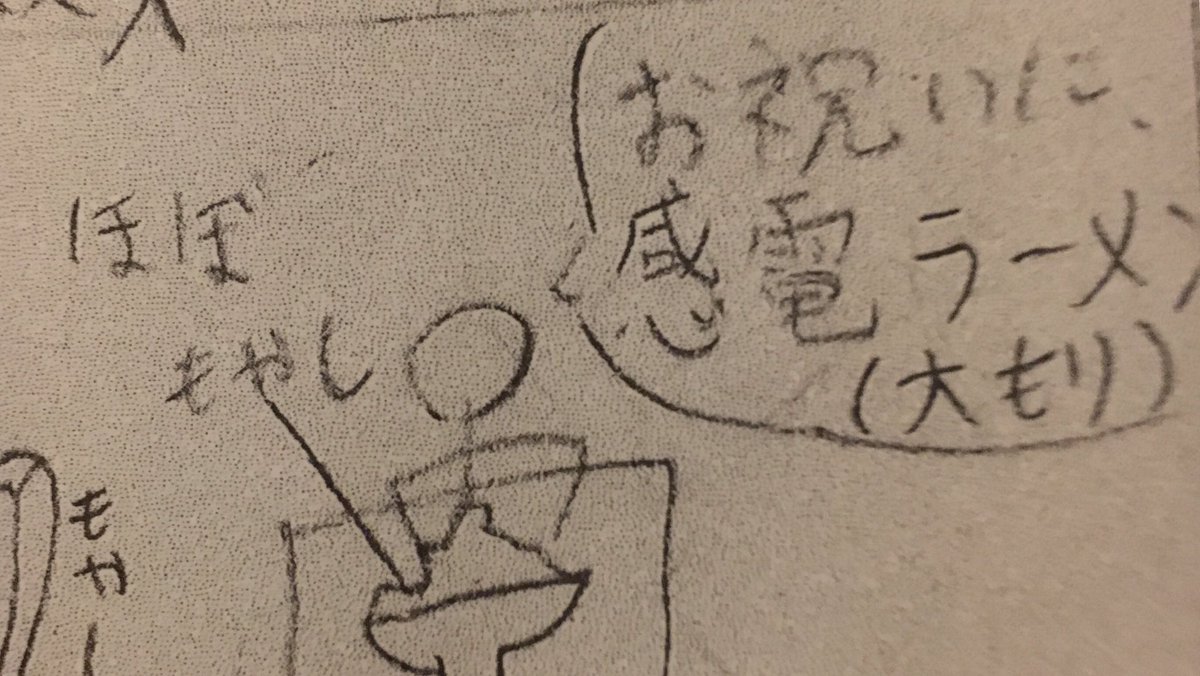 お祝いに、
感電ラーメン
(大もり)
ほぼ
もやし